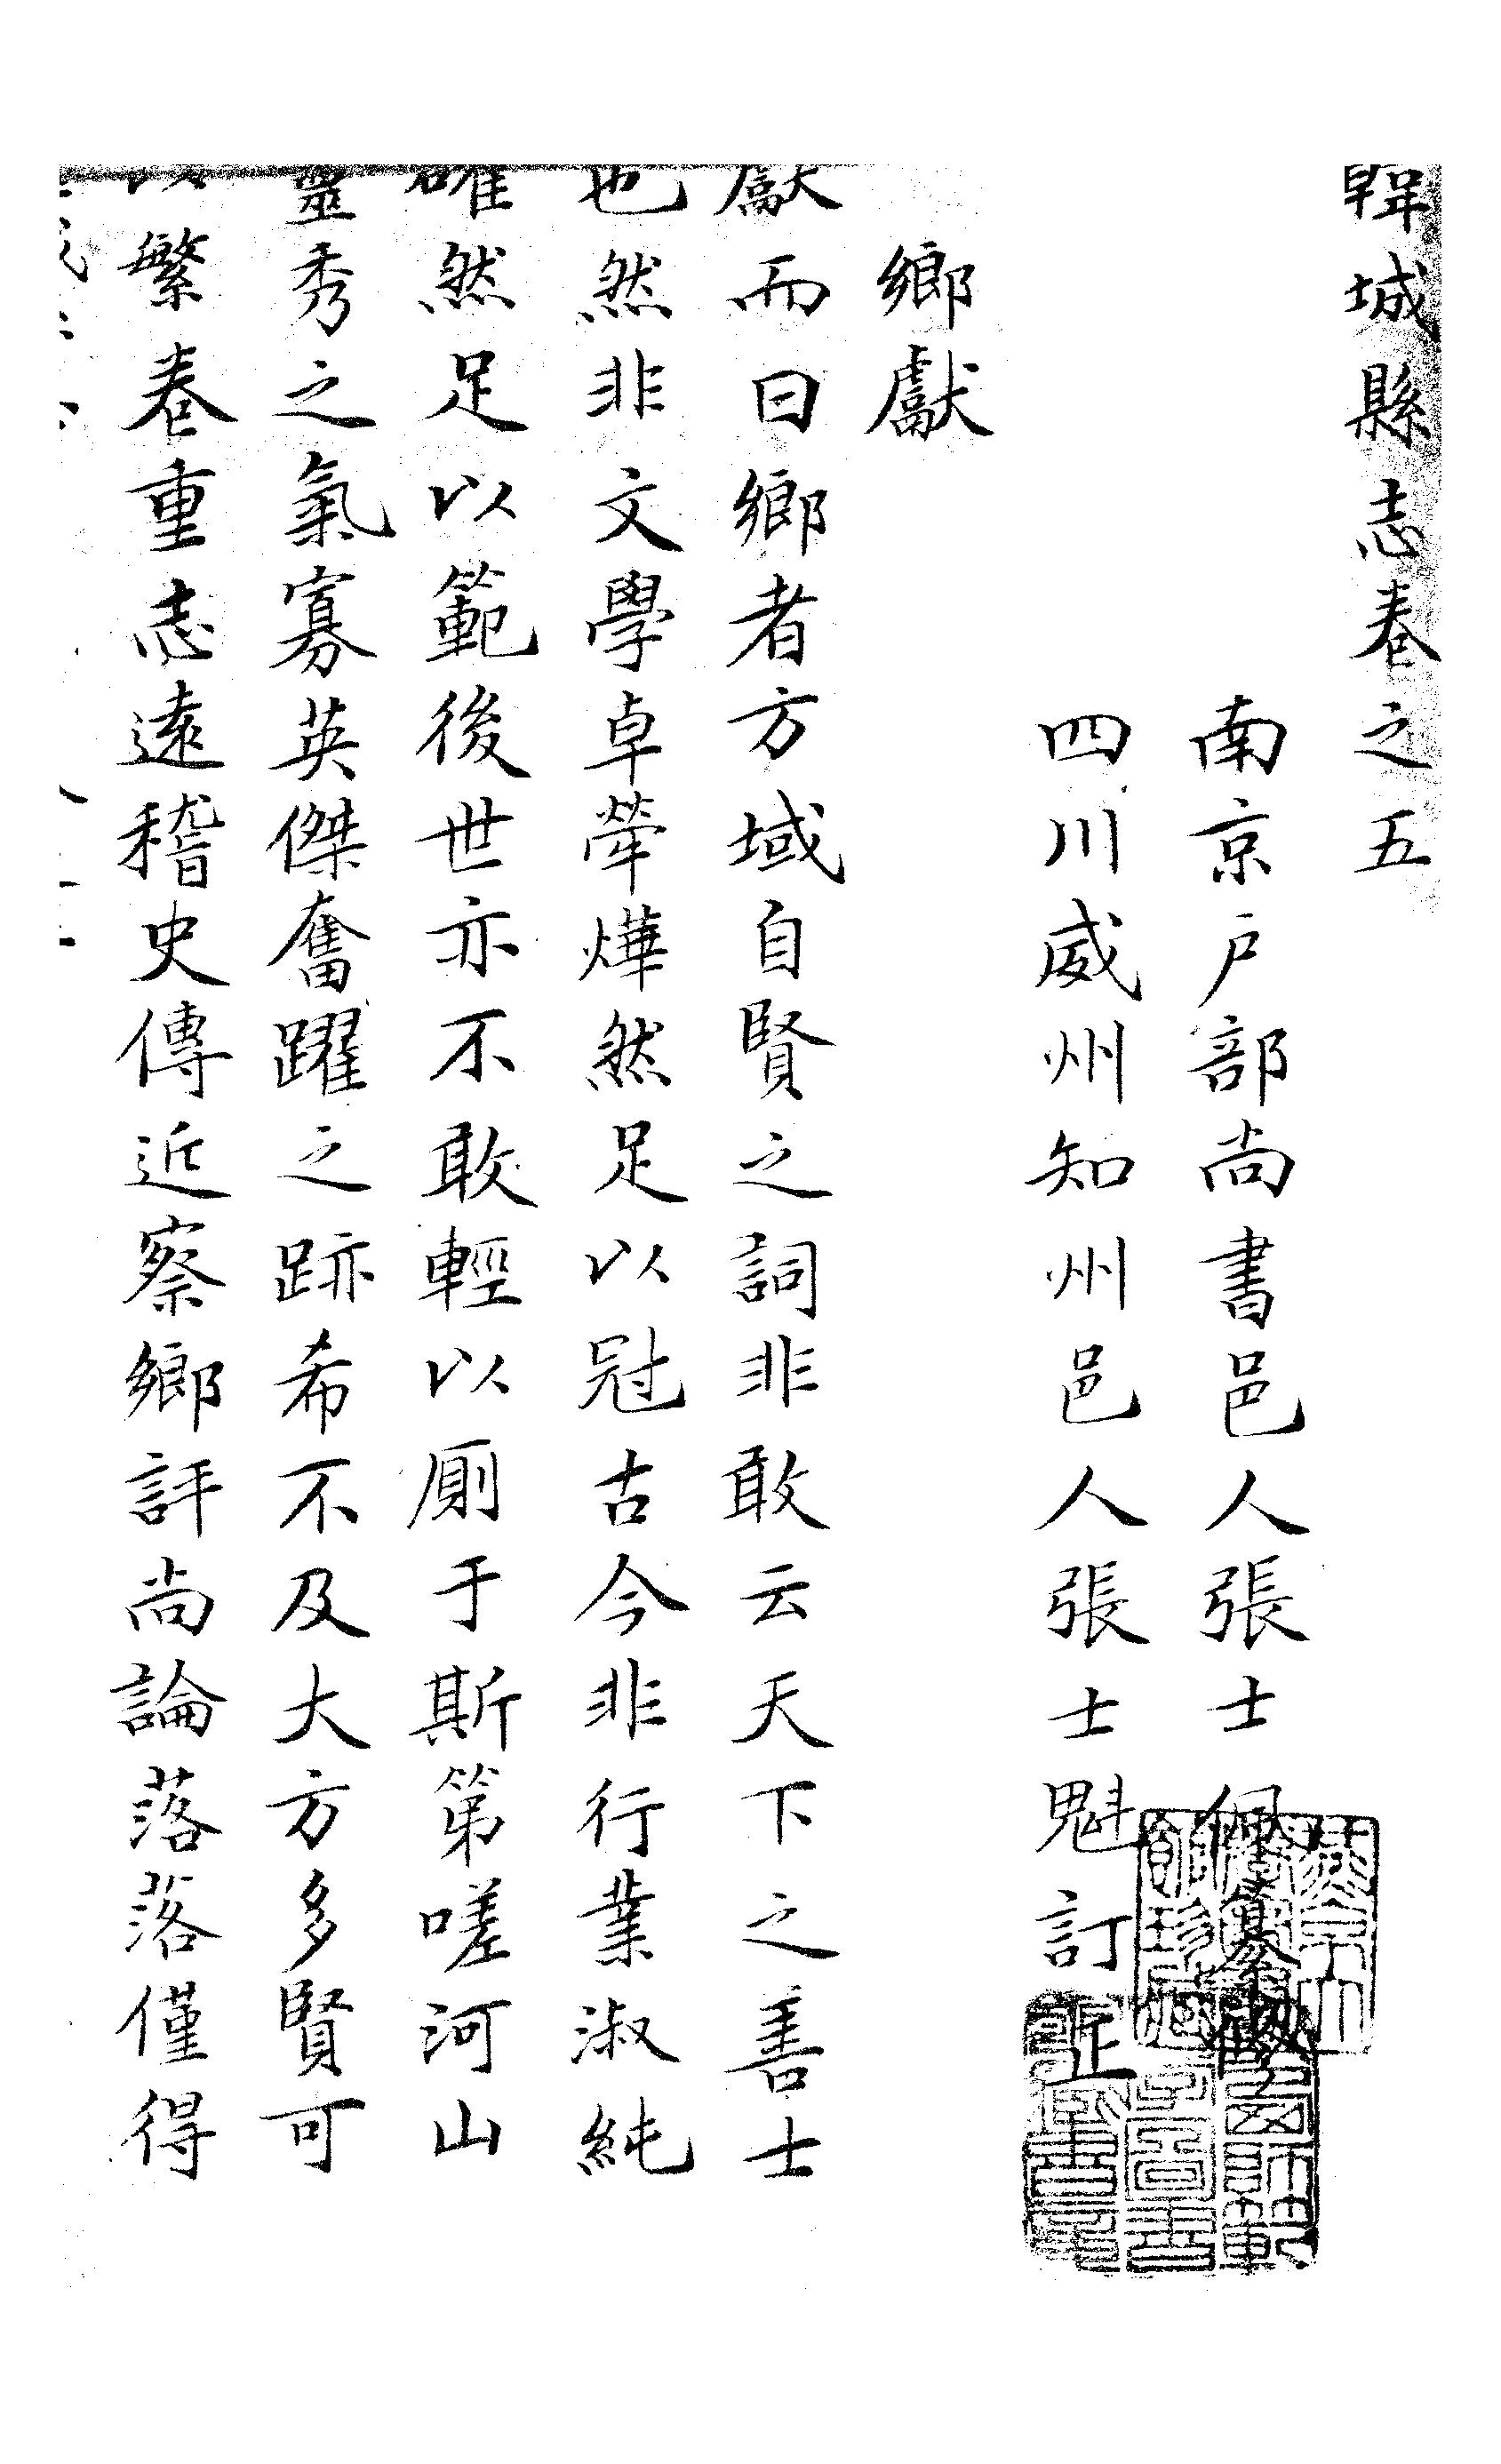 韓城縣志卷之五
南京户部尚書邑人張士佩纂
四川威州知州邑人張士魁訂正
鄉獻
獻而曰鄉者方域自賢之詞非敢云天下之善士
也然非文學卓犖燁然足以冠古今非行業淑純
確然足以範後世亦不敢輕以厠于斯第嗟河山
靈秀之氣寡英傑奮躍之跡希不及大方多賢可
以繁卷重志遠稽史傳近察鄉評尚論落落僅得